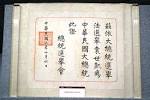 茲依大總統選舉
法選舉袁世凱爲
中華民國大總統
此證
大總統選舉會
中華民國